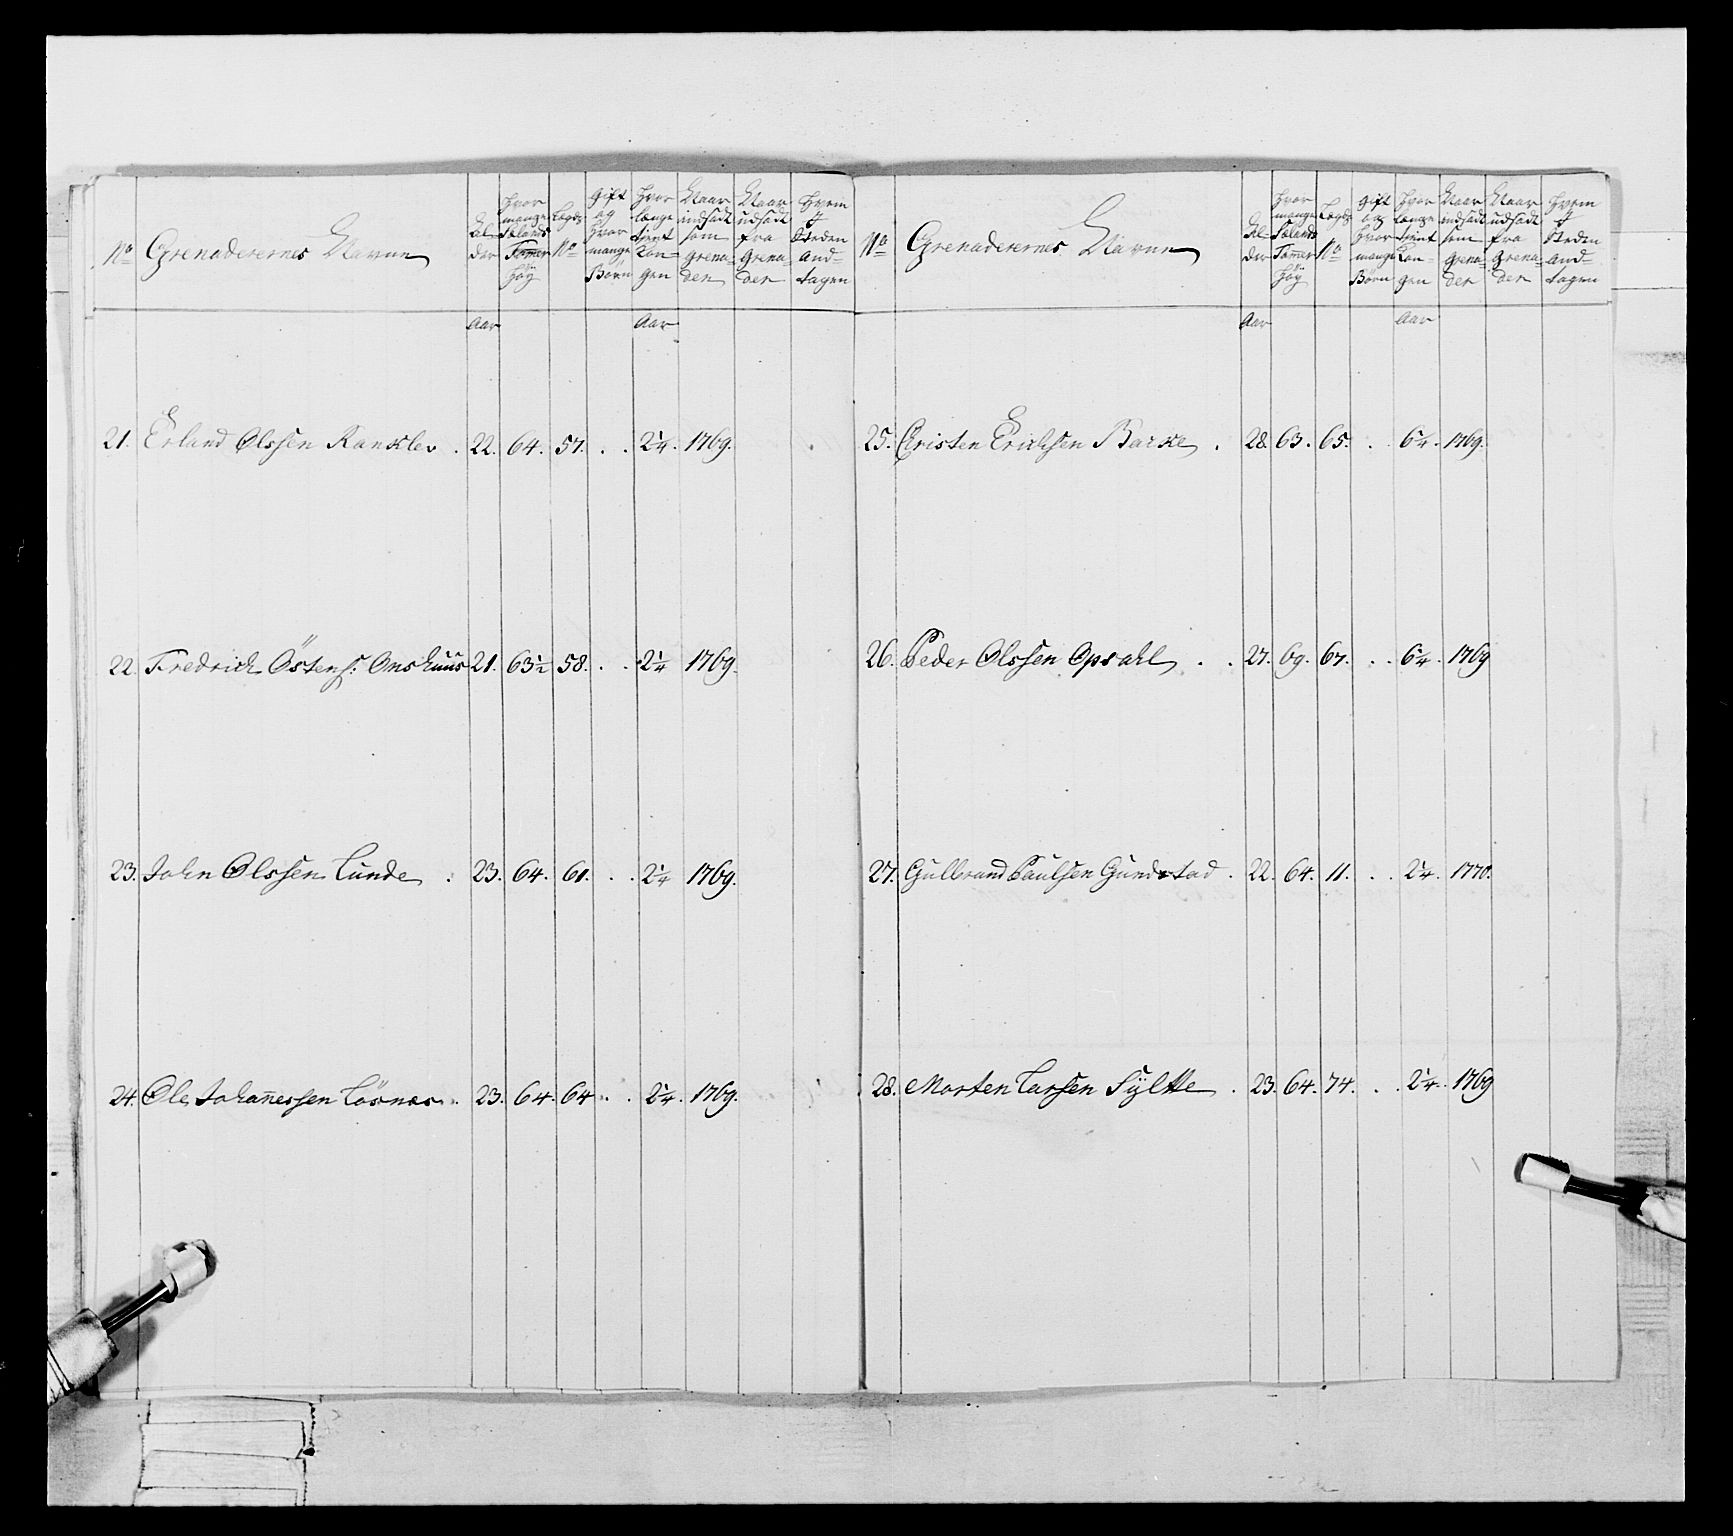 No Grenaderernes Navne Al- der Hvor mange Siælands Tom̅er höÿ Lægds No Gift og Hvor mange Börn Hvor længe tient Kon- gen Naar indsadt som Grena- der Naar udsadt fra Grena- der Hvem i Steden And- tagen
Aar Aar
21. Erland Olssen Ranklev . 22. 64. 57. . . 2¼. 1769.
22. Fredrich Östens: Onshuus 21. 63½ 58. . . 2¼ 1769.
23. John Olssen Lunde . 23. 64. 61. . . 2¼ 1769.
24. Ole Johan̅essen Lösnæs . 23. 64. 64 . . 2¼. 1769.
No Grenaderernes Navne Al- der Hvor mange Siælands Tom̅er höÿ Lægds No Gift og Hvor mange Börn Hvor længe tient Kon- gen Naar indsadt som Grena- der Naar udsadt fra Grena- der Hvem i Steden And- tagen
Aar Aar
25. Christen Erichsen . 28. 63. 65. . . 6¼. 1769.
26. Peder Olssen Opsahl . . 27. 69. 67. . . 6¼. 1769
27. Gulbrand Paulsen Gundstad . 22. 64. 11. . . 2¼. 1770.
28. Morten Larsen Sÿltte . 23. 64. 74. . . 2¼. 1769